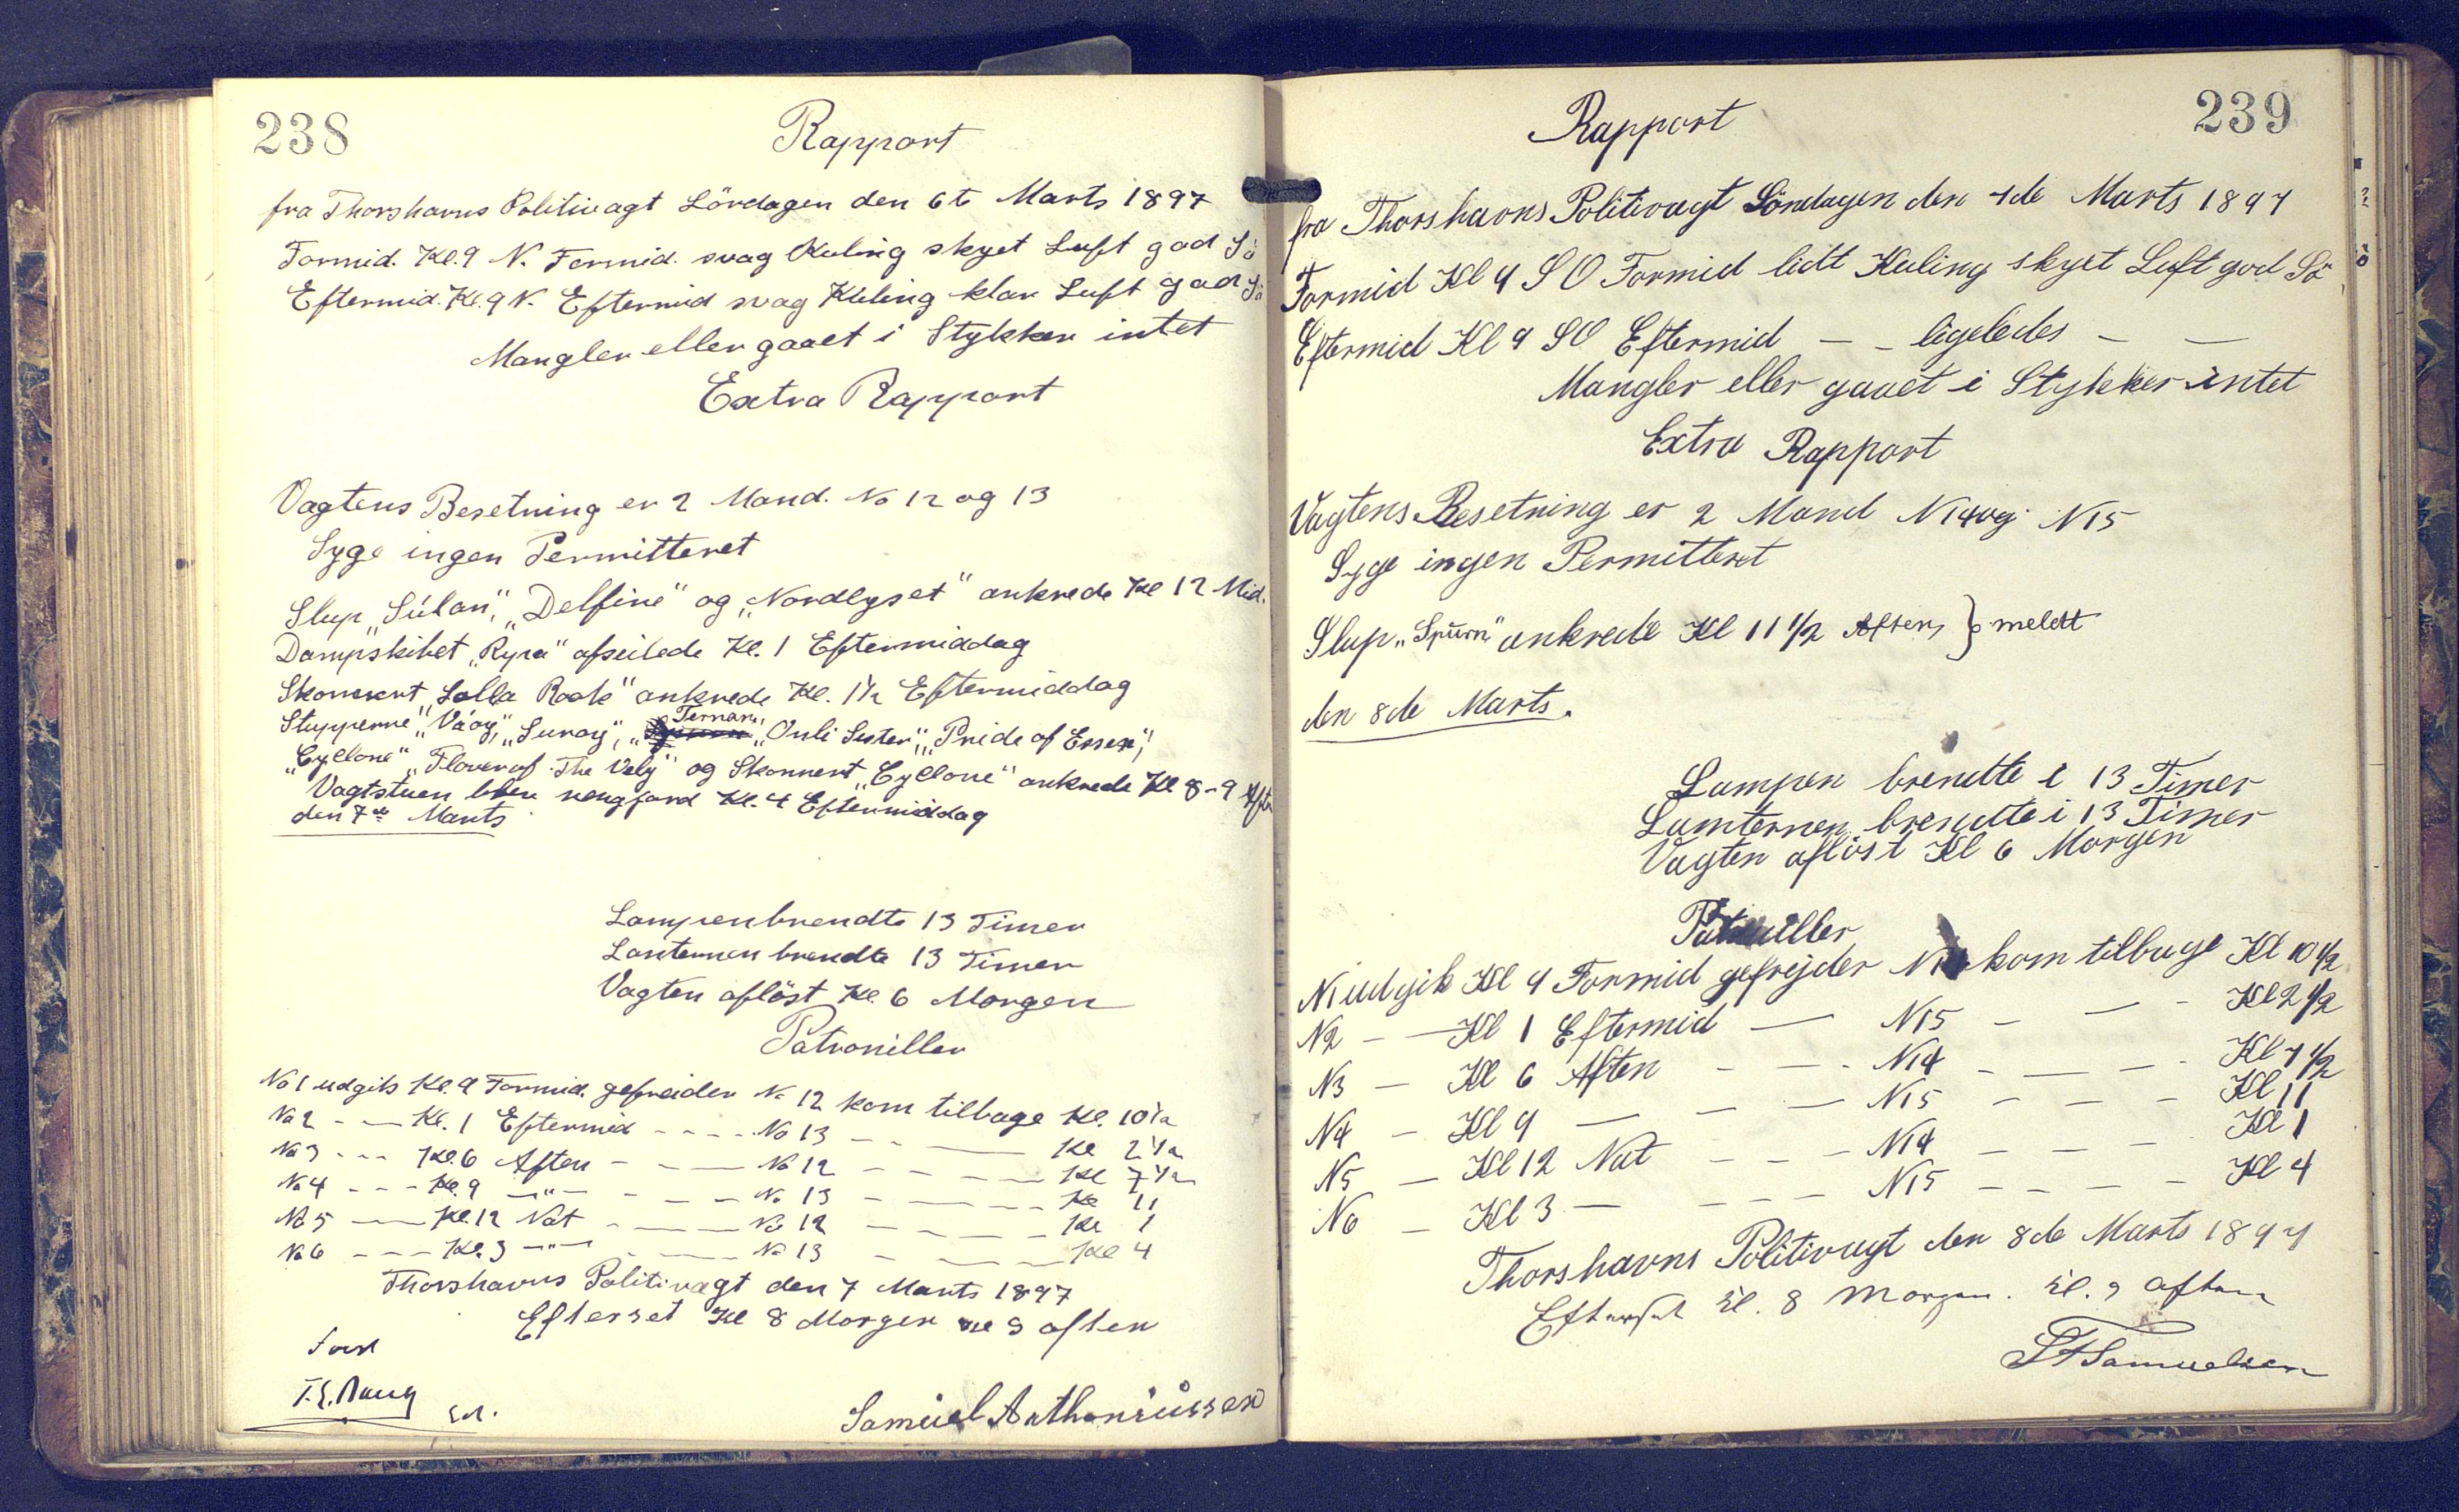 238
Rapport
fra Thorshavns Politivagt Lördagen den 6t Marts 1897
Formid. Kl. 9 N. Formid. svag Kuling skyet Luft god Sö
Eftermid. Kl. 9 N. Eftermid svag Kuling klar Luft god Sö
Mangler eller gaaet i Stykker intet
Extra Rapport
Vagtens Besetning er 2 Mand. No 12 og 13
Syge ingen Permitteret
Slup „Súlan", „Delfine" og „Nordlyset" ankrede Kl 12 Mid.
Dampskibet „Ryra" afseilede Kl. 1 Eftermiddag
Skonnert „Lalla Rook" ankrede Kl. 1½ Eftermiddag
Slupperne „Váoy", „Suroy", „Ternan", „Onli Sister", „Pride of Essex",
„Cyklone" „Flover of The Vely" og Skonnert „Cyklone" ankrede Kl 8-9 Aften
Vagtstuen blev rengjord Kl. 4 Eftermiddag
den 7de Marts
Lampen brendte 13 Timer
Lanternen brendte 13 Timer
Vagten aflöst Kl. 6 Morgen
Patroniller
No 1 udgik Kl. 9 Formid. gefreider No 12 kom tilbage Kl. 10½
No 2 - — Kl. 1 Eftermid - - - - No 13 — - — Kl 2½
No 3 - - - Kl. 6 Aften - - — No 12 - - - — Kl 7½
No 4 - - - Kl. 9 —"— - - - No 13 - — - - - Kl 11
No 5 — Kl. 12 Nat - — — No 12 — - - — Kl 1
No 6 - - - Kl. 3 —"— - — No 13 - - - — Kl 4
Thorshavns Politivagt den 7 Marts 1897
Efterset Kl 8 Morgen Kl 9 aften
Samúel Anthoniússen
239
Rapport
fra Thorshavns Politivagt Söndagen den 7de Marts 1897
Formid Kl 9 SO Formid lidt Kuling skyet Luft god Sö
Eftermid Kl 9 SO Eftermid — - ligeledes - —
Mangler eller gaaet i Stykker intet
Extra Rapport
Vagtens Besetning er 2 Mand N14 og N15
Syge ingen Permitteret
Slup „Spurn" ankrede Kl 11½ Aften } meldt
den 8de Marts.
Lampen brendte i 13 Timer
Lamternen brendte i 13 Timer
Vagten aflöst Kl 6 Morgen
Patruller
N1 udgik Kl 9 Formid gefrejder kom tilbage Kl 10½
N2 - — Kl 1 Eftermid — N15 - — - Kl 2½
N3 — Kl 6 Aften - - - N14 - — - - Kl 7½
N4 - Kl 9 — - — N15 - - - Kl 11
N5 — Kl 12 Nat - - - N14 - - - Kl 1
N6 - Kl 3 — - - - N15 - - - - Kl 4
Thorshavns Politivagt den 8de Marts 1897
Efterset Kl. 8 Morgen. Kl. 9 aften
Samuelsen